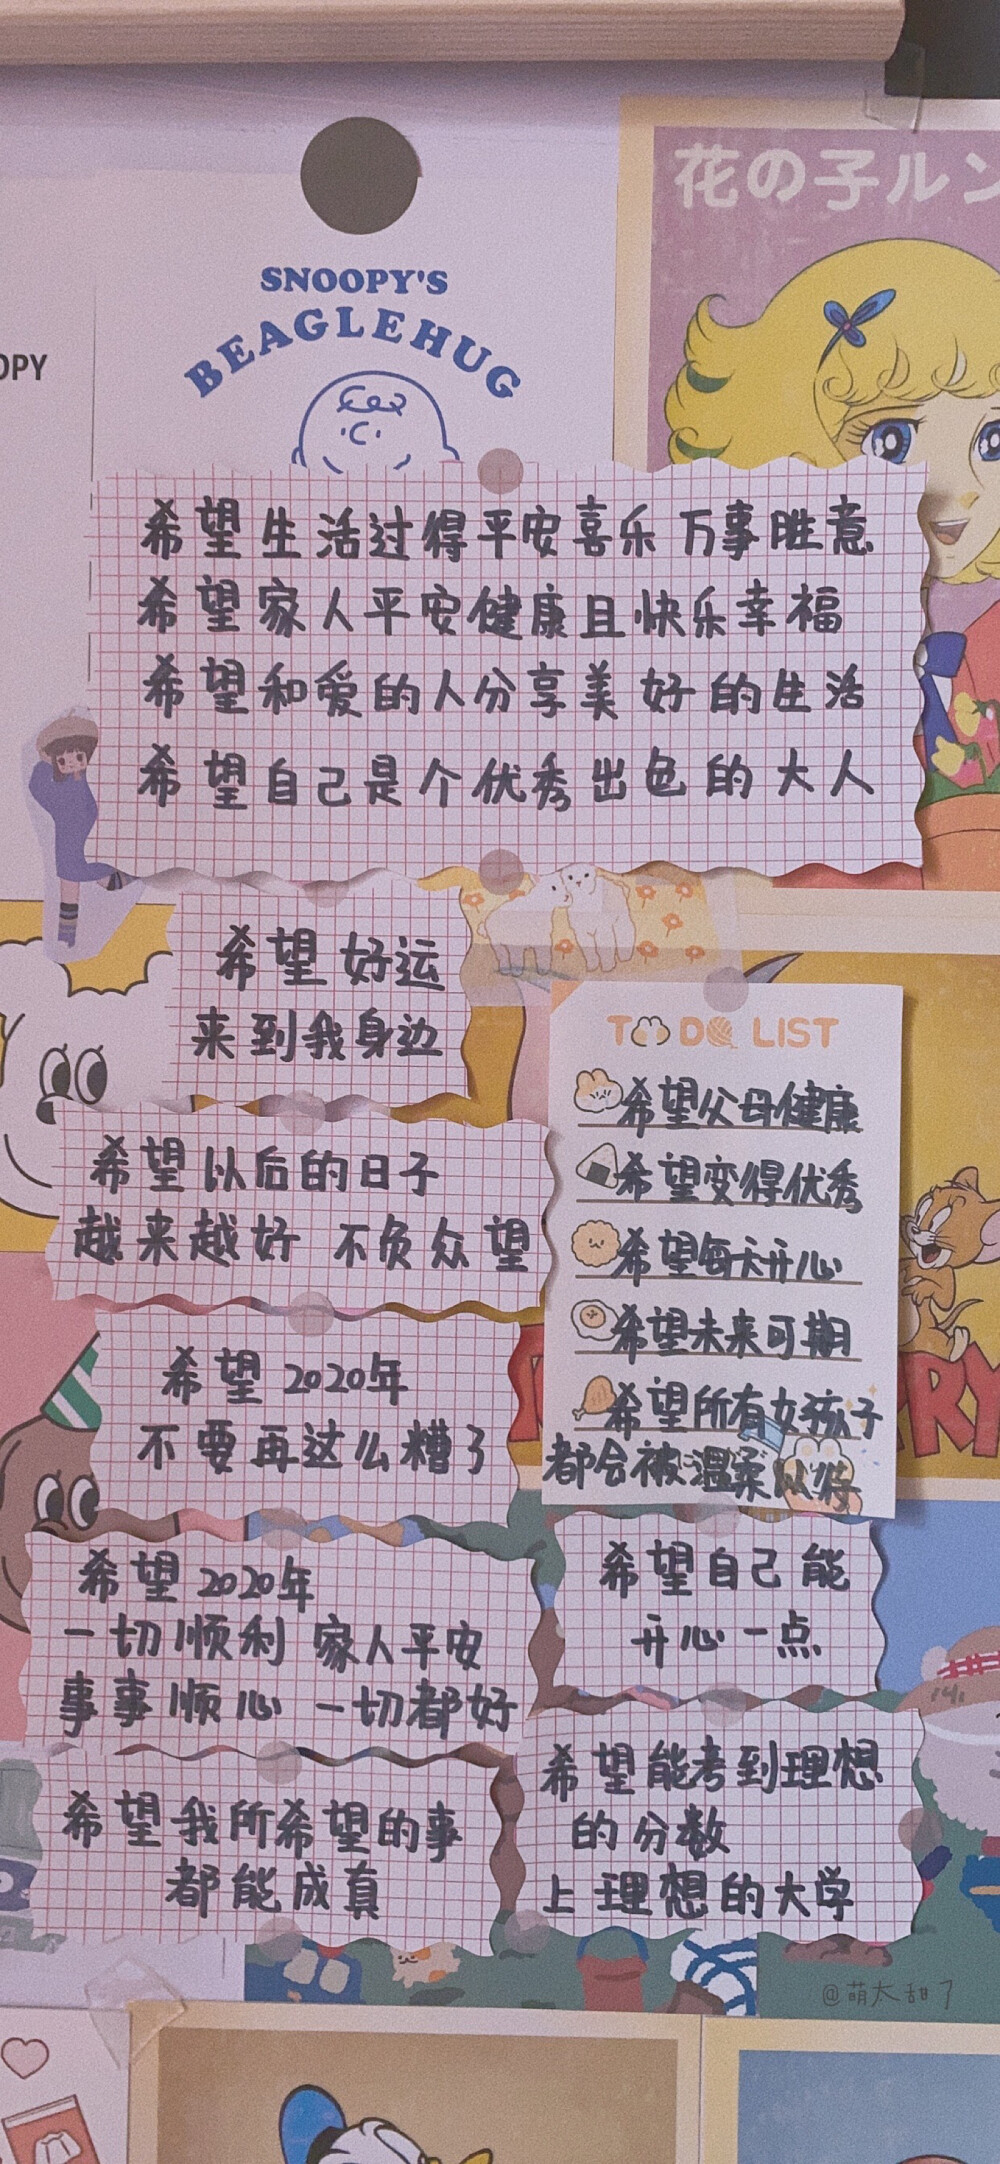 花の子ルン
SNOOPY'S
BEAGLEHUG
OPY
希望生活过得平安喜乐 万事胜意
希望家人平安健康且快乐幸福
希望和爱的人分享美好的生活
希望自己是个优秀出色的大人
希望好运
来到我身边
希望以后的日子
越来越好 不负众望
希望2020年
不要再这么糟了
希望2020年
一切顺利 家人平安
事事顺心 一切都好
希望我所希望的事
都能成真
TO DO LIST
希望父母健康
希望变得优秀
希望每天开心
希望未来可期
希望所有女孩子
都会被温柔以待
希望自己能
开心一点
希望能考到理想
的分数
上理想的大学
RY
@萌太甜了